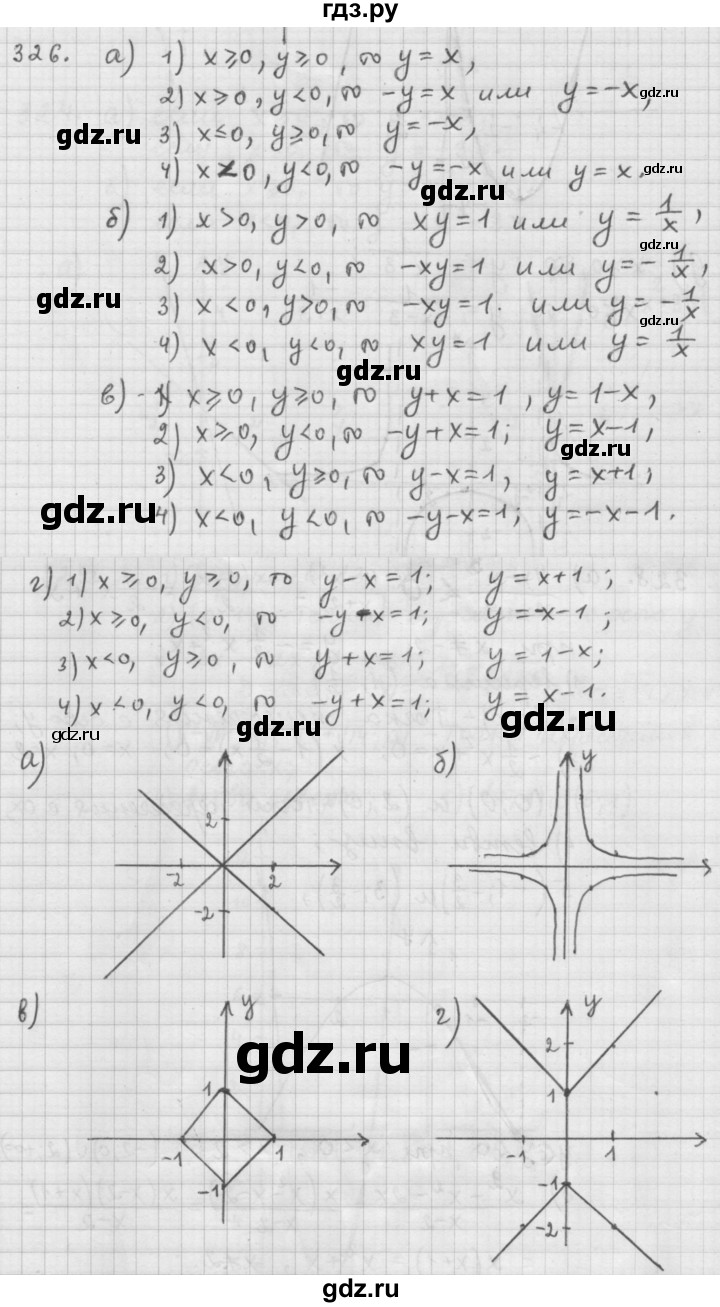 гдз.ру
326. а) 1) x⩾0, y⩾0, то y = x,
2) x⩾0, y<0, то -y = x или y = -x,
gdz.ru
gdz.ru
3) x≤0, y⩾0, то y = -x,
4) x<0, y<0, то -y = -x или y = x.
gdz.ru
gdz.ru
б) 1) x>0, y>0, то xy = 1 или y = 1/x,
gdz.ru
2) x>0, y<0, то -xy = 1 или y = -1/x,
gdz.ru
3) x<0, y>0, то -xy = 1. или y = -1/x
gdz.ru
4) x<0, y<0, то xy = 1 или y = 1/x
gdz.ru
в) - 1) x⩾0, y⩾0, то y+x = 1, y = 1-x,
2) x⩾0, y<0, то -y+x = 1; y = x-1,
gdz.ru
3) x<0, y⩾0, то y-x = 1, y = x+1;
gdz.ru
4) x<0, y<0, то -y-x = 1; y = -x-1.
г) 1) x⩾0, y⩾0, то y-x = 1; y = x+1;
2) x⩾0, y<0, то -y-x = 1; y = -x-1;
3) x<0, y⩾0, то y+x = 1; y = 1-x;
4) x<0, y<0, то -y+x = 1; y = x-1.
gdz.ru
gdz.ru
gdz.ru
а) б) y
2
-2 2
-2
в) y г) y
gdz.ru
2
1 1
-1 1 -1 1
-1 -1
-2
gdz.ru